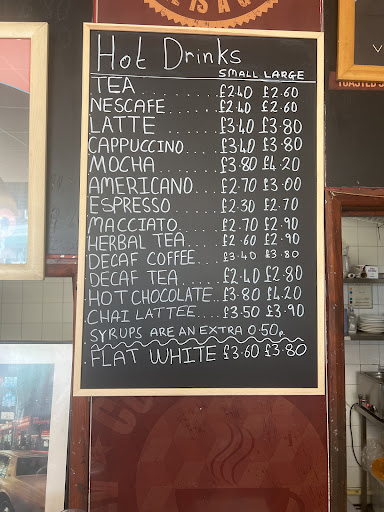 IS A
Hot Drinks
SMALL LARGE
TEA........£2.40 £2.60
NESCAFE......£2.40 £2.60
LATTE.......£3.40 £3.80
CAPPUCCINO...£3.40 £3.80
MOCHA.......£3.80 £4.20
AMERICANO....£2.70 £3.00
ESPRESSO.....£2.30 £2.70
MACCIATO.....£2.70 £2.90
HERBAL TEA...£2.60 £2.90
DECAF COFFEE...£3.40 £3.80
DECAF TEA....£2.40 £2.80
HOT CHOCOLATE...£3.80 £4.20
CHAI LATTEE....£3.50 £3.90
SYRUPS ARE AN EXTRA 0.50p
FLAT WHITE £3.60 £3.80
TOASTED S